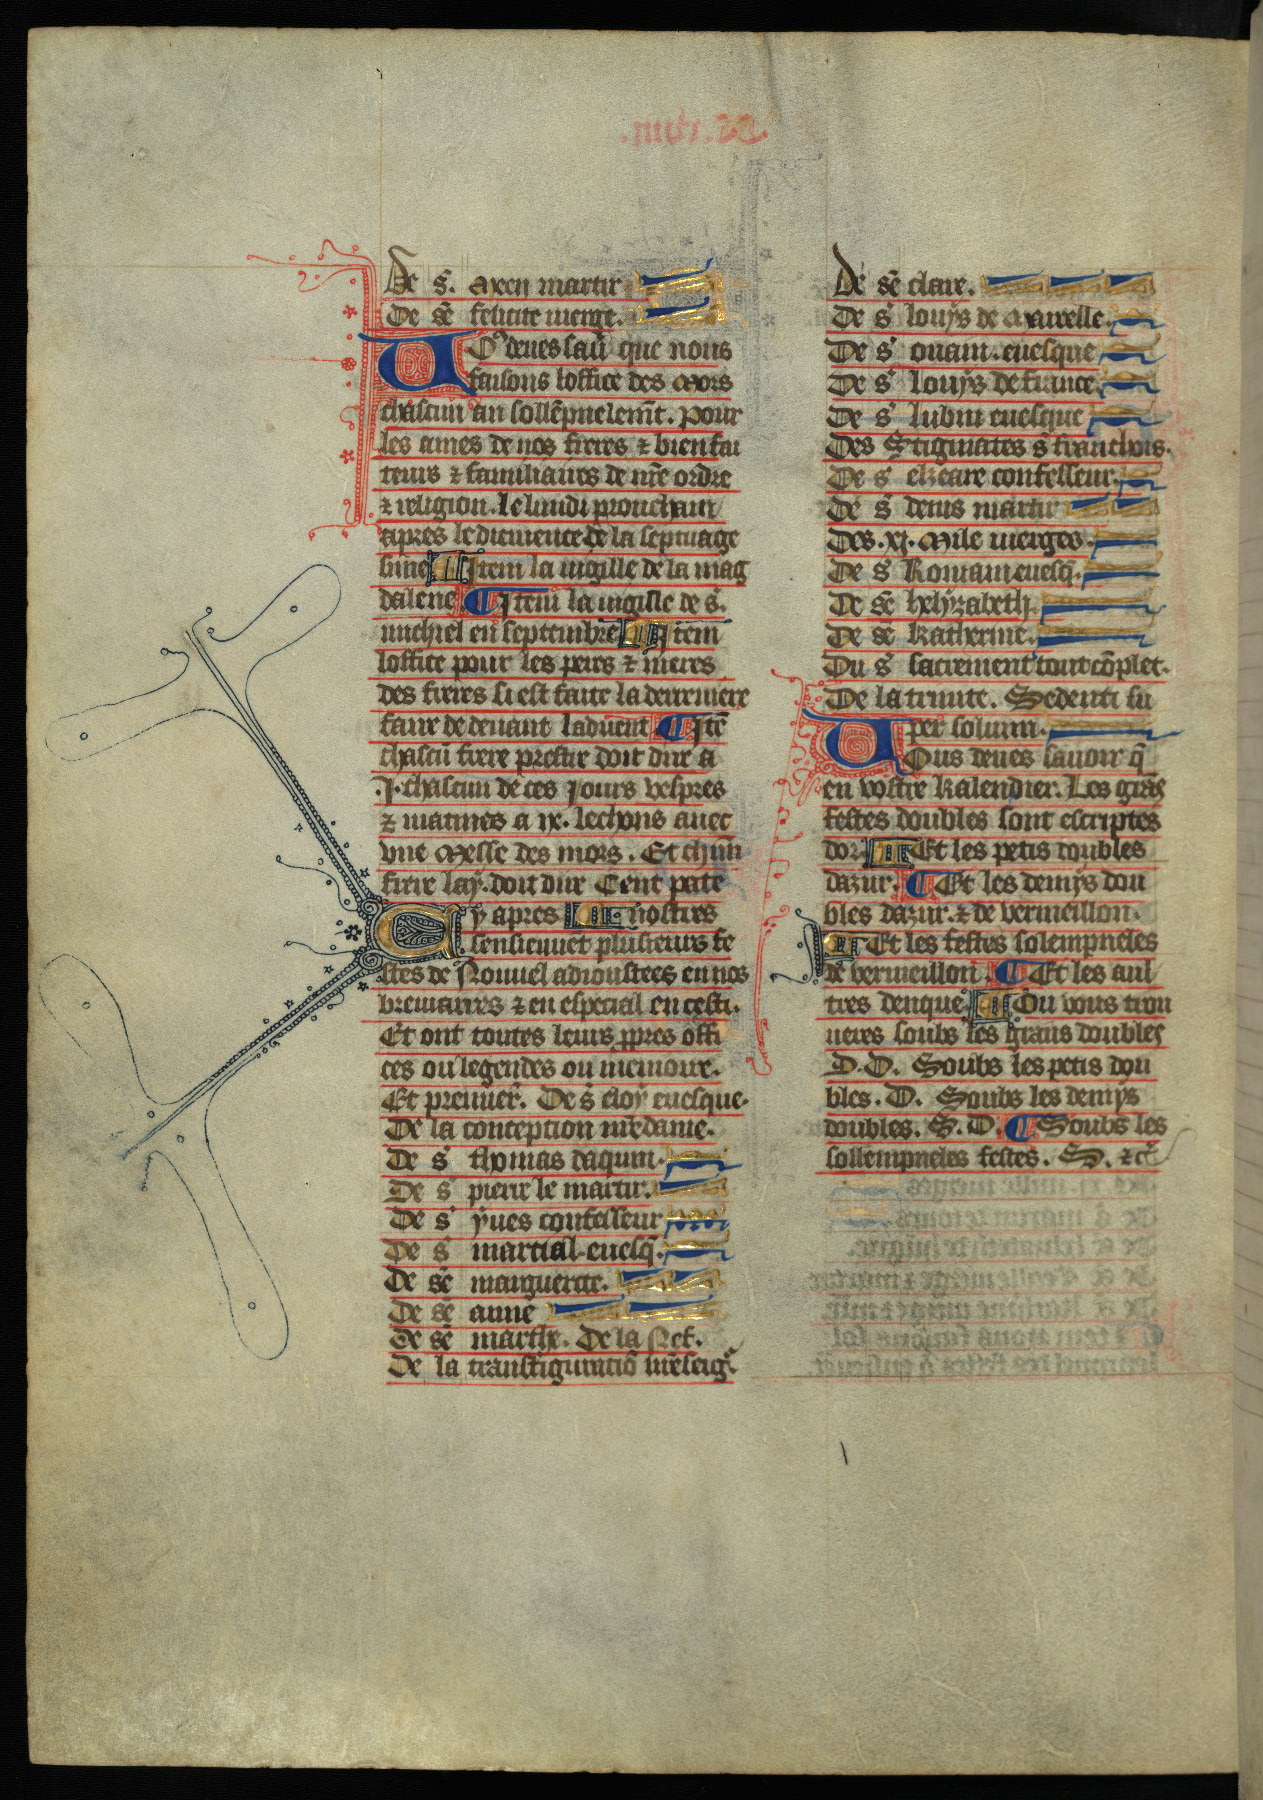 De s̄. Marcij martir
De sē felicite vierge.
Vo9 deues sauī que nous
faisons loffice des Mors
chascun an sollēpnelemt̄. Pour
les ames de nos freres ⁊ bienfai
teurs ⁊ familiaires de nr̄e ordre
⁊ religion. Le lundi prouchain
apres le diemence de la septuage
sime Item la vigille de la mag
dalene Item la vigille de s̄.
michiel en septembre Item
loffice pour les peres ⁊ meres
des freres si est faite la derreniere
faire de deuant laduent Itē
chascū frere prestre doit dire a
.J. chascun de ces Jours vespres
⁊ matines a ix. lechons auec
vne Messe des mors. Et chūn
frere lay. doit dire Cent pate
Cy apres nostres
sensieuuet plusieurs fe
stes de Nouuel adioustees en nos
breuiaires ⁊ en especial en cesti.
Et ont toutes leurs ppres offi
ces ou legendes ou memoire.
Et premier̄. De s̄ eloy euesque.
De la conception nr̄e dame.
De s̄ thomas daquin.
De s̄ pierre le martir.
De s̄ yues confesseur
De s̄ martial euesq̄.
De sē marguerite.
De sē anne
De sē marthe. De la Nef.
De la transfiguratiō nr̄e seigr̄
De sē claire.
De s̄ louys de Marcelle.
De s̄ ouain euesque
De s̄ louys de france.
De s̄ lubin euesque
Des Stigmates s̄ franchois.
De s̄ elzeare confesseur.
De s̄ denis martir
Des .xj. Mile vierges.
De s̄ Romain euesq̄.
De sē helyzabeth.
De sē Katherine.
Du s̄ sacrement tout cōplet.
De la trinite. Sedenti su
per solium.
Vous deues sauoir q̄
en vostre Kalendier. Les grās
festes doubles sont escriptes
dor. Et les petis doubles
dazur. Et les demys dou
bles dazur. ⁊ de vermeillon.
Et les festes solempneles
de vermeillon. Et les aul
tres denque Ou vous trou
ueres soubs les grans doubles
D.D. Soubs les petis dou
bles. D. Soubs les demys
doubles. S. D. Soubs les
sollempneles festes. S. ⁊cͣ